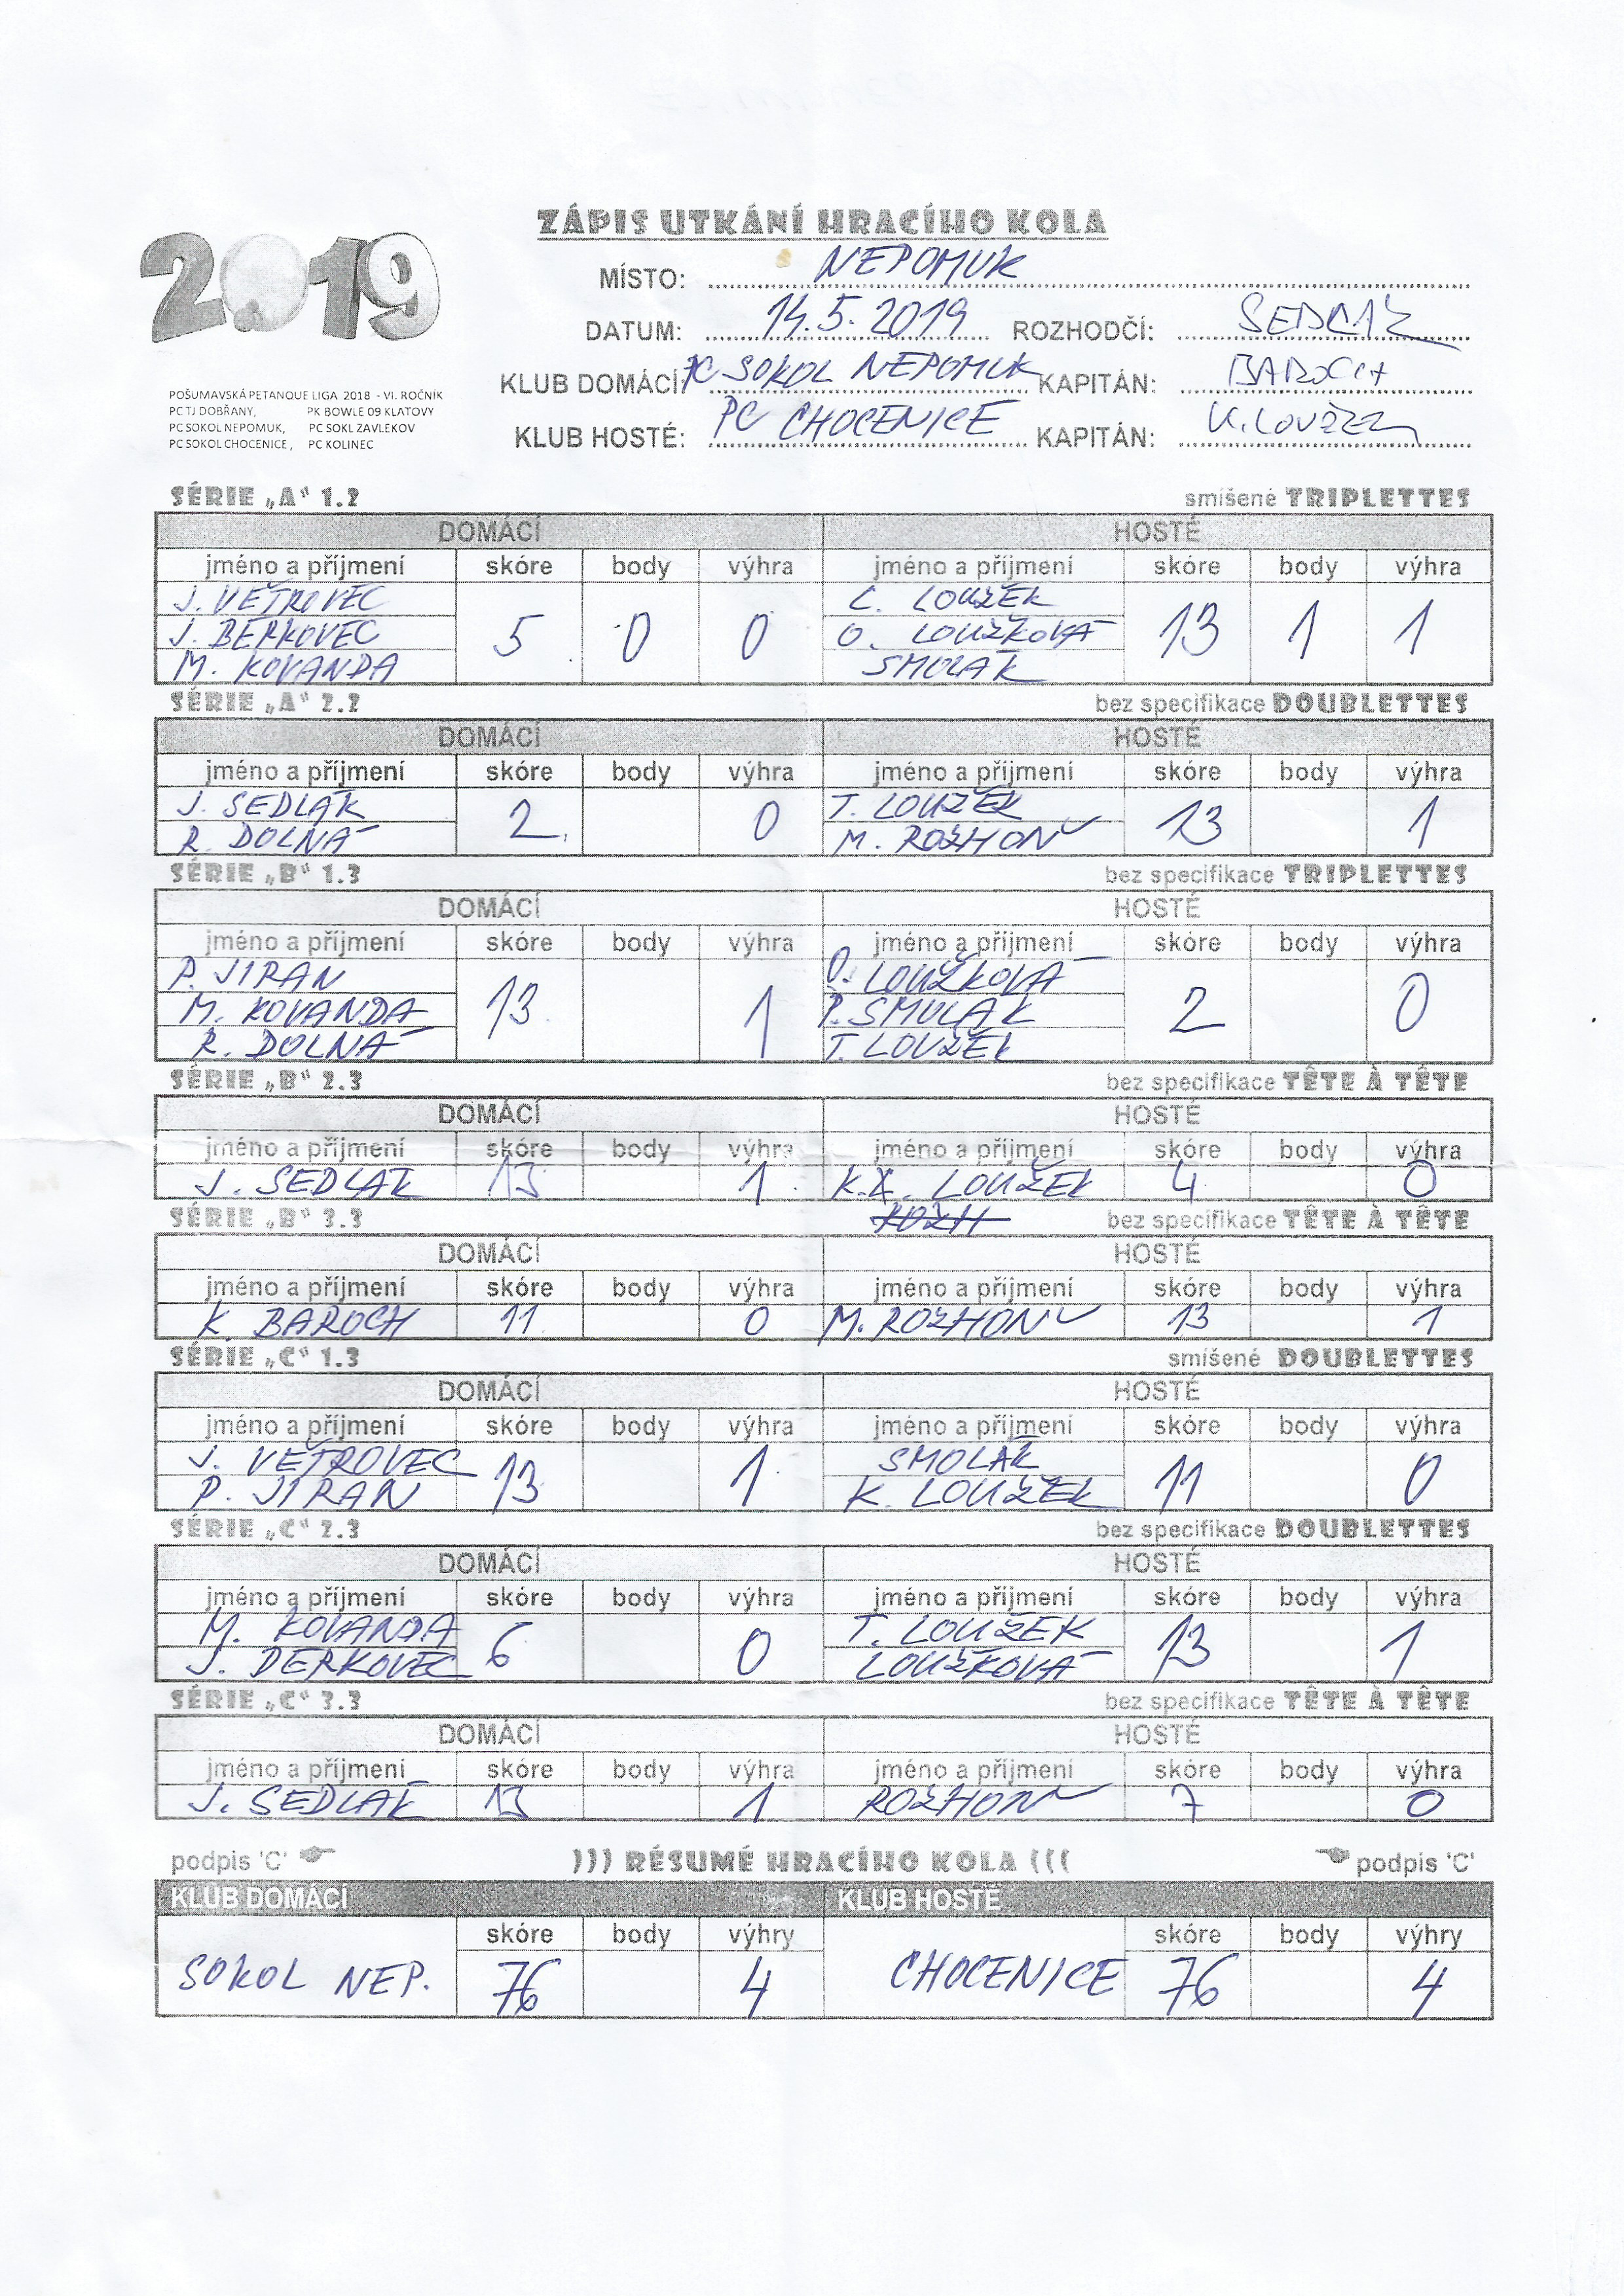 ZÁPIS UTKÁNÍ HRACÍHO KOLA
2019
MÍSTO: NEPOMUK
DATUM: 14.5.2019 ROZHODČÍ: SEDLÁK
KLUB DOMÁCÍ: PC SOKOL NEPOMUK KAPITÁN: BAROCH
KLUB HOSTÉ: PC CHOCENICE KAPITÁN: K. LOUŽEK
POŠUMAVSKÁ PETANQUE LIGA 2018 - VI. ROČNÍK
PC TJ DOBŘANY, PK BOWLE 09 KLATOVY
PC SOKOL NEPOMUK, PC SOKL ZAVLEKOV
PC SOKOL CHOCENICE, PC KOLINEC
SÉRIE „A“ 1.2 smíšené TRIPLETTES
DOMÁCÍ HOSTÉ
jméno a příjmení skóre body výhra jméno a příjmení skóre body výhra
J. VĚTROVEC L. LOUŽEK
J. BERKOVEC 5 0 0 O. LOUŽKOVÁ 13 1 1
M. KOVANDA SMOLÁK
SÉRIE „A“ 2.2 bez specifikace DOUBLETTES
DOMÁCÍ HOSTÉ
jméno a příjmení skóre body výhra jméno a příjmení skóre body výhra
J. SEDLÁK 2 0 T. LOUŽEK 13 1
R. DOLNÁ M. ROZHOŇ
SÉRIE „B“ 1.3 bez specifikace TRIPLETTES
DOMÁCÍ HOSTÉ
jméno a příjmení skóre body výhra jméno a příjmení skóre body výhra
P. JIRAN O. LOUŽKOVÁ
M. KOVANDA 13 1 P. SMOLAK 2 0
R. DOLNÁ T. LOUŽEK
SÉRIE „B“ 2.3 bez specifikace TÊTE À TÊTE
DOMÁCÍ HOSTÉ
jméno a příjmení skóre body výhra jméno a příjmení skóre body výhra
J. SEDLÁK 13 1 K. LOUŽEK 4 0
SÉRIE „B“ 3.3 bez specifikace TÊTE À TÊTE
DOMÁCÍ HOSTÉ
jméno a příjmení skóre body výhra jméno a příjmení skóre body výhra
K. BAROCH 11 0 M. ROZHOŇ 13 1
SÉRIE „C“ 1.3 smíšené DOUBLETTES
DOMÁCÍ HOSTÉ
jméno a příjmení skóre body výhra jméno a příjmení skóre body výhra
J. VĚTROVEC 13 1 SMOLÁK 11 0
P. JIRAN K. LOUŽEK
SÉRIE „C“ 2.3 bez specifikace DOUBLETTES
DOMÁCÍ HOSTÉ
jméno a příjmení skóre body výhra jméno a příjmení skóre body výhra
M. KOVANDA 6 0 T. LOUŽEK 13 1
J. BERKOVEC LOUŽKOVÁ
SÉRIE „C“ 3.3 bez specifikace TÊTE À TÊTE
DOMÁCÍ HOSTÉ
jméno a příjmení skóre body výhra jméno a příjmení skóre body výhra
J. SEDLÁK 13 1 ROZHOŇ 7 0
podpis 'C' ))) RÉSUMÉ HRACÍHO KOLA ((( podpis 'C'
KLUB DOMÁCÍ KLUB HOSTÉ
skóre body výhry skóre body výhry
SOKOL NEP. 76 4 CHOCENICE 76 4